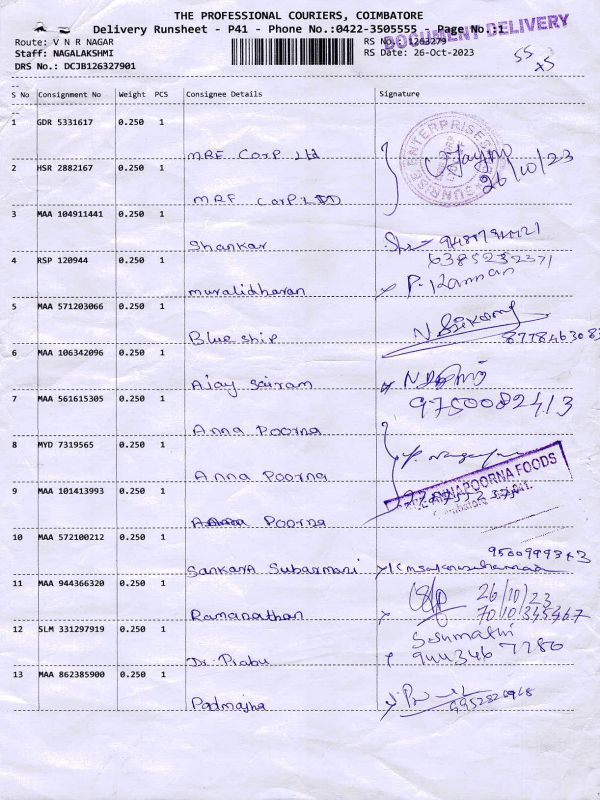 THE PROFESSIONAL COURIERS, COIMBATORE
Delivery Runsheet - P41 - Phone No.:0422-3505555 - Page No.:1
DOCUMENT DELIVERY
Route: V N R NAGAR
RS No.: 1263279
Staff: NAGALAKSHMI
RS Date: 26-Oct-2023
DRS No.: DCJB126327901
55
x5
S No Consignment No Weight PCS Consignee Details Signature
1 GDR 5331617 0.250 1
MRF Corp Ltd
SUNRISE ENTERPRISES
26/10/23
2 HSR 2882167 0.250 1
MRF CorP LTD
3 MAA 104911441 0.250 1
Shankar
4 RSP 120944 0.250 1
6385232371
muralidharan
P. Kannan
5 MAA 571203066 0.250 1
Blue ship
6 MAA 106342096 0.250 1
Ajay Sairam
7 MAA 561615305 1
0.250
9750082413
Anna Poorna
8 MYD 7319565 0.250 1
Anna Poorna
ANNAPOORNA FOODS
9 MAA 101413993 0.250 1
Poorna
10 MAA 572100212 0.250 1
Sankara Subarmani
11 MAA 944366320 0.250 1
26/10/23
Ramanathan
12 SLM 331297919 0.250 1
Dr. Prabu
13 MAA 862385900 0.250 1
Padmajha